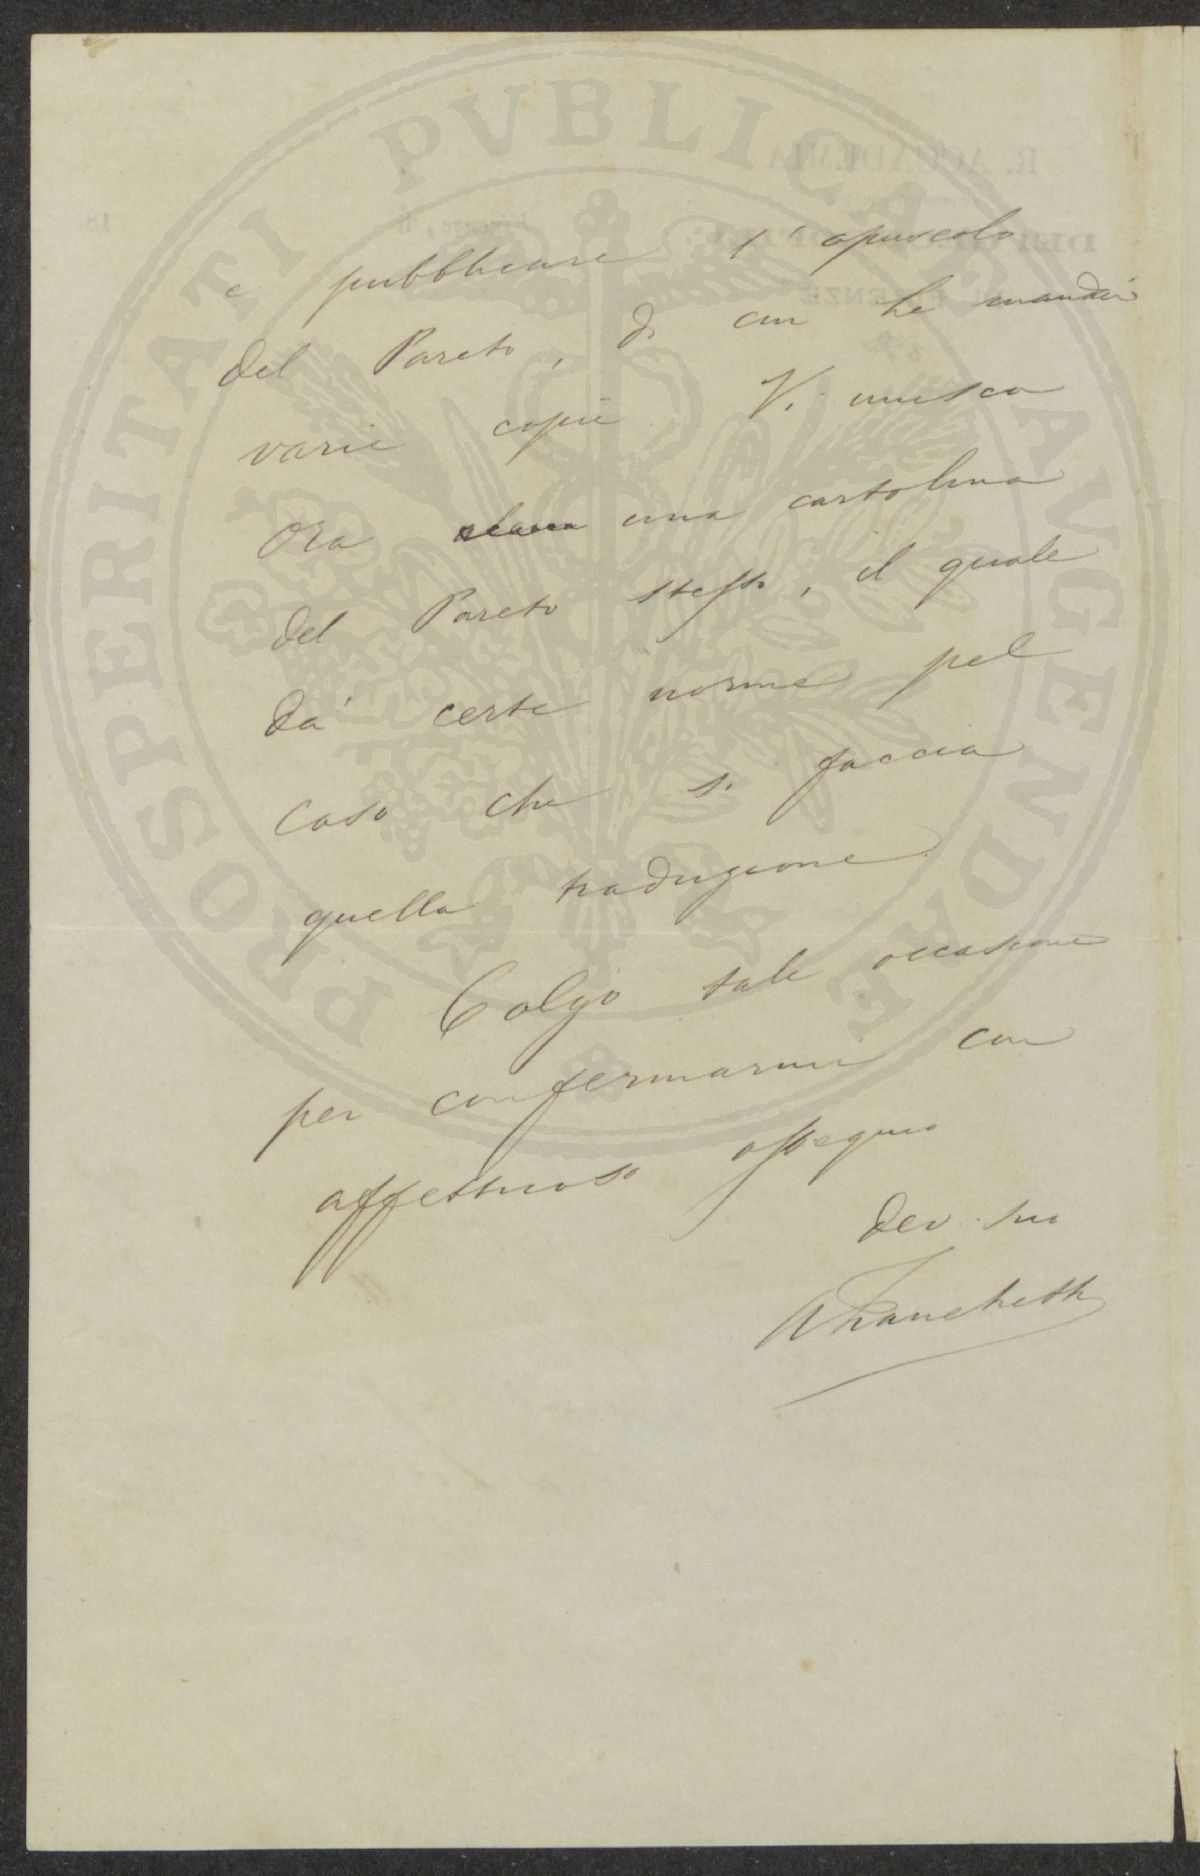 PROSPERITATI PVBLICAE AVGENDAE
R. ACCADEMIA
e pubblicare l'opuscolo
del Pareto, di cui Le mandai
varie copie. Vi unisco
ora una cartolina
del Pareto stesso, il quale
dà certe norme pel
caso che si faccia
quella traduzione.
Colgo tale occasione
per confermarmi con
affettuoso ossequio
dev. suo
Franchetti